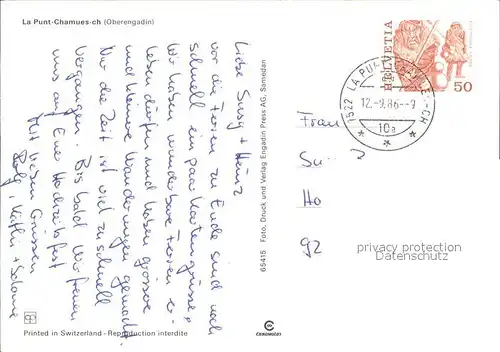 La Punt-Chamues-ch (Oberengadin)
Liebe Susy + Heinz
vor die Ferien zu Ende sind noch
schnell ein paar Kartengrüsse!
Wir haben wunderbare Ferien er-
leben dürfen und haben grosse
und kleine Wanderungen gemacht
Nur die Zeit ist viel zu schnell
vergangen. Bis bald wir freuen
uns auf Eure Hochzeitsfest
Mit lieben Grüssen
Rolf, Käthi +
65415 Foto, Druck und Verlag Engadin Press AG, Samedan
HELVETIA
50
7522 LA PUNT-CHAMUES-CH
12.-9.86.-9
10a
Frau
Su
Ho
92
privacy protection
Datenschutz
Printed in Switzerland - Reproduction interdite
CHROMOLUX